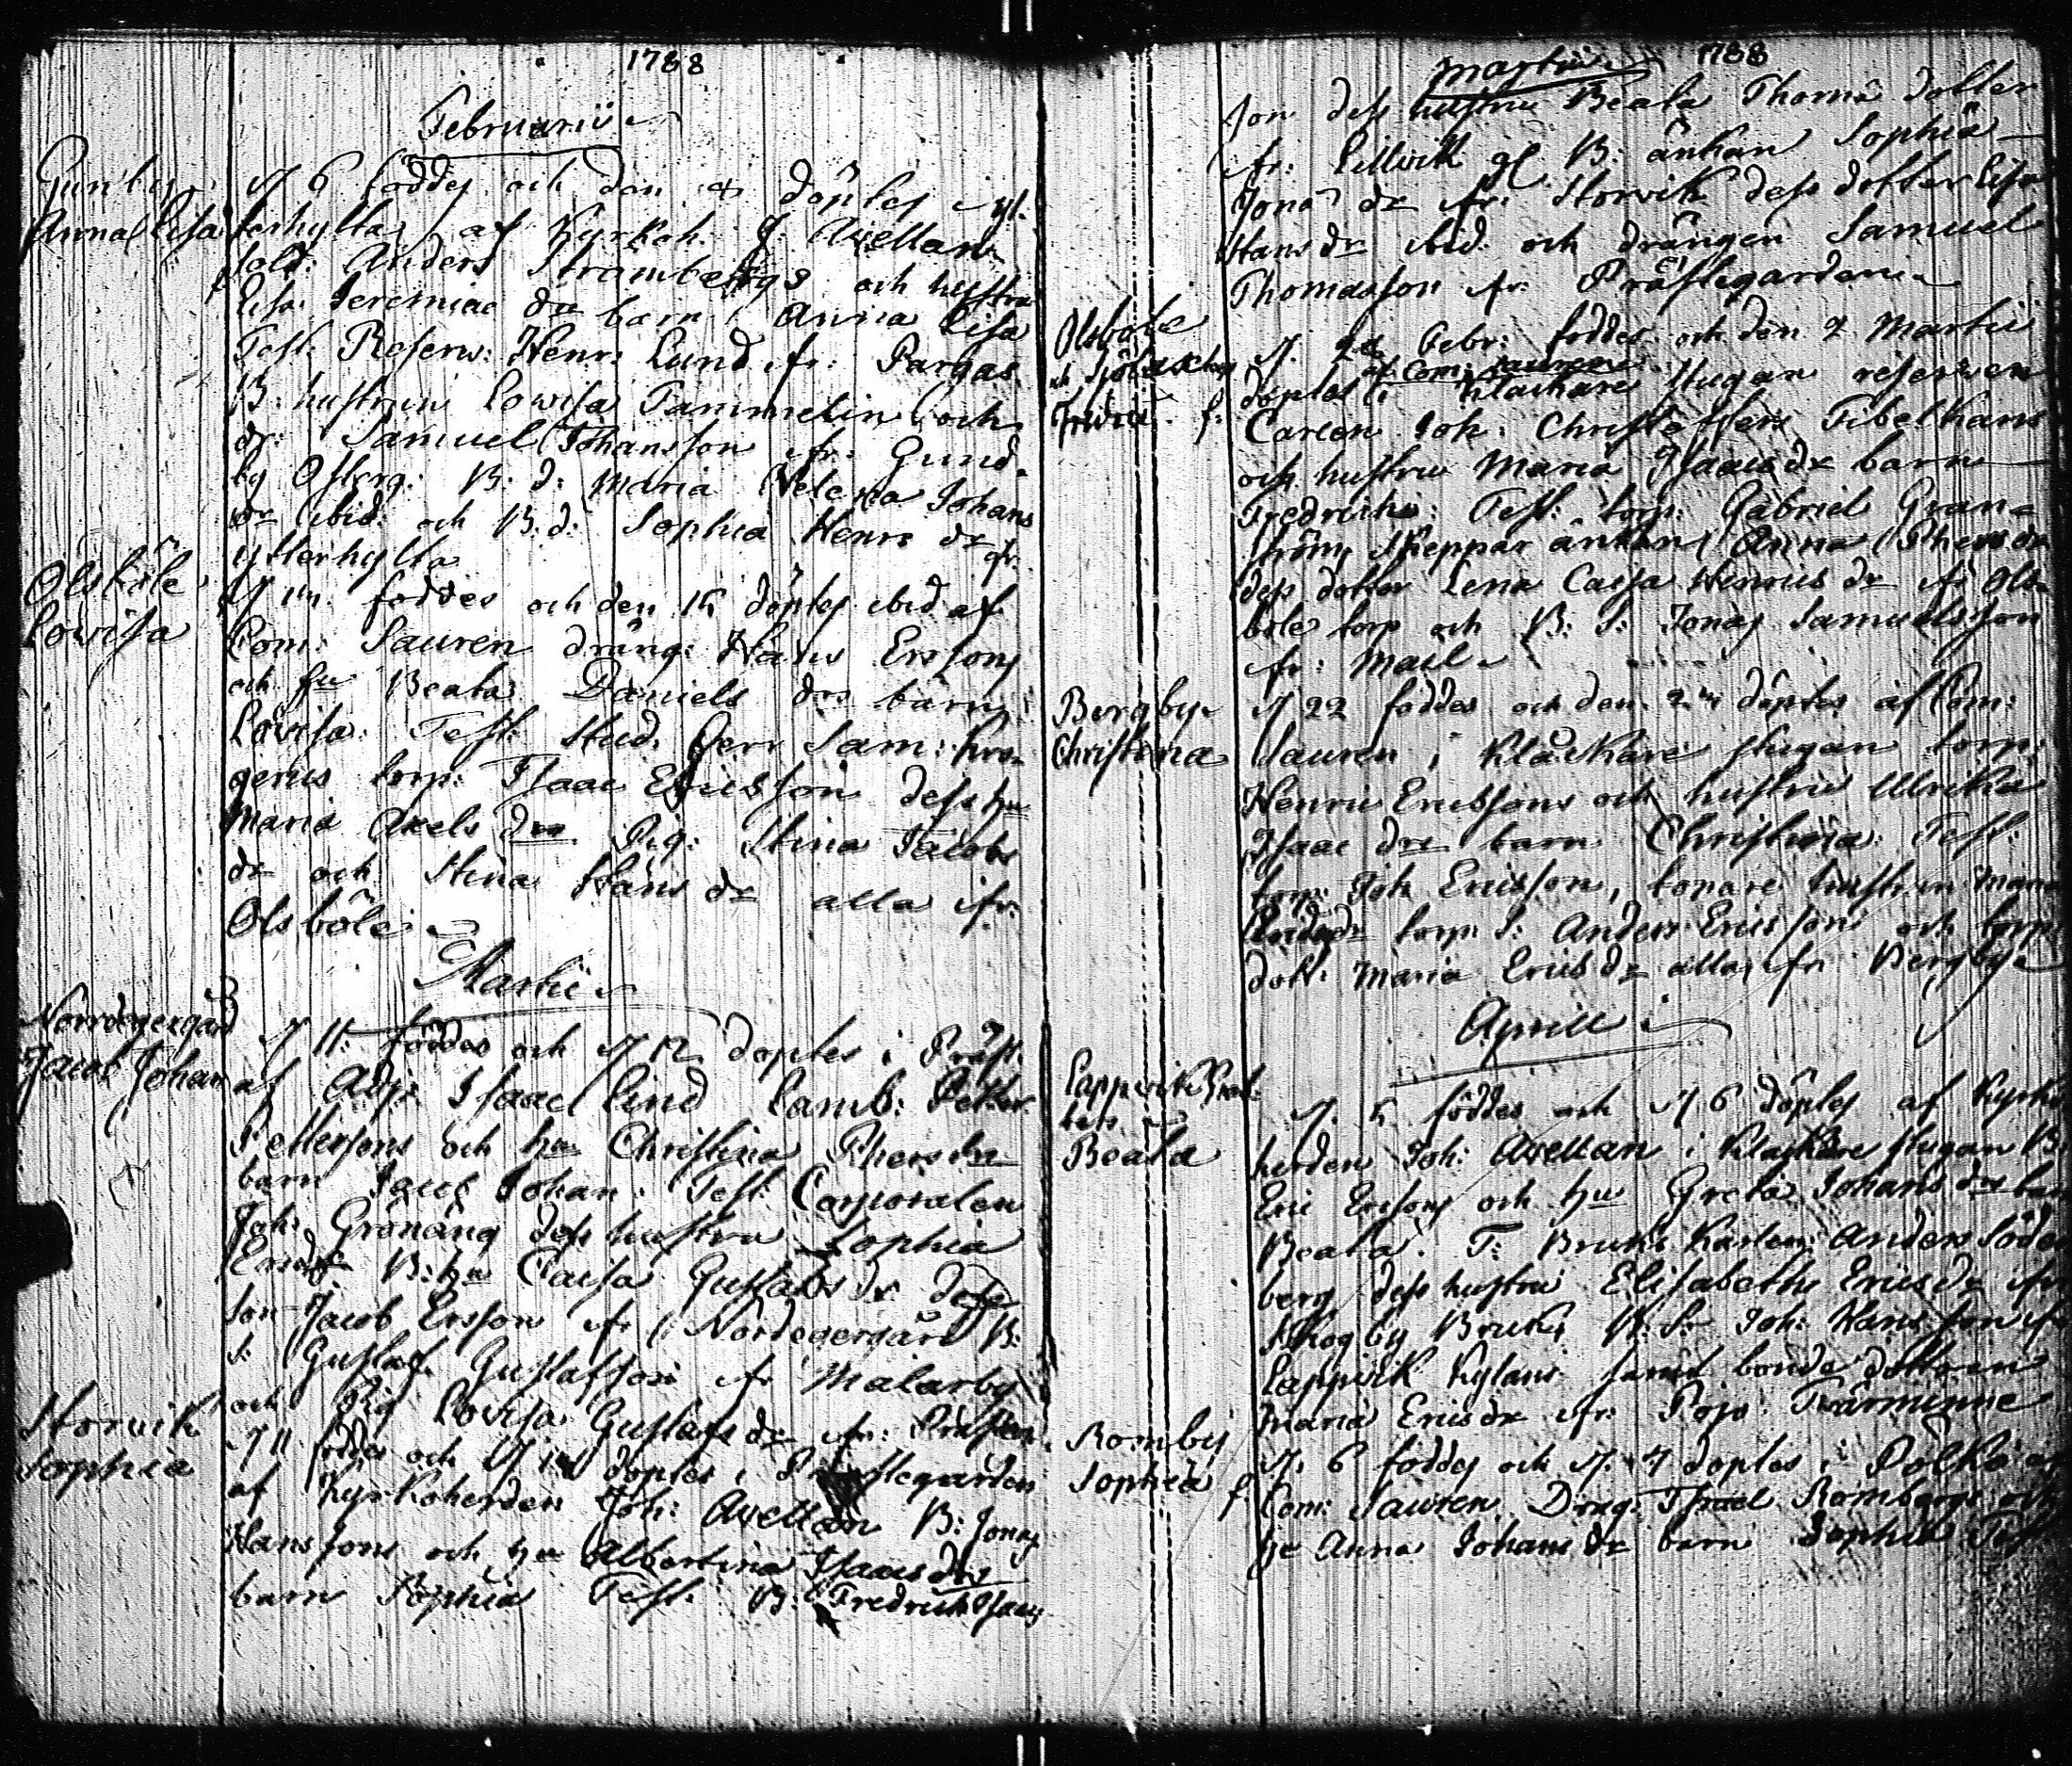 1788
Februarii
Gunby
Anna Lisa
d 6 föddes och den 9 döptes i yt-
terhylta af Kyrkoh. J. Avellan
sold. Anders Strömbergs och hustru
Lisa Jeremiae dr barn Anna Lisa
Test: Reserv: Henr: Lund fr: Pargas
B. hustrun Lowisa Tammelin och
dr: Samuel Johansson fr: Gund-
by Osterg: B. d: Maria Helena Johans
dr ibid: och B. d: Sophia Henr: dr fr.
ytterhylta
Olsböle
Lowisa
d 14 föddes och den 15 döptes ibid af
Com: Sauren dräng: Hans Erssons
och hu Beata Daniels drs barn
Lovisa: Test: Stud. Herr Sam: Kro-
gerus torp: Isaac Ericsson dess hu
Maria Axels dr Pig: Stina Jacobs
dr och Stina Hans dr alla fr:
Olsböle
Martii
Norrdegergård
Jacob Johan
d 11: föddes och d 12 döptes i Präst
af Adj: Isaac Lind Lamb: Petter
Pettersons och hu Christina Phersdrs
barn Jacob Johan. Test: Corporalen
Joh: Grönäng dess hustru Sophia
Ericsdr B: hu Caisa Gustafs dr dess
son Jacob Ersson fr: Nordegergård B:
s: Gustaf Gustafsson fr Malarby
och Pig Lovisa Gustafs dr fr: Prästen
Storvik
Sophia
d 11 föddes och d döptes i Prästegården
af Kyrkoherden Joh: Avellan B: Jonas
Hanssons och hu Albertina Isaacs drs
barn Sophia Test: B: Fredrich Isaacs
Martii 1788
son dess hustru Beata Thomæ dotter
fr: Lillvik gl B: änkan Sophia
Jonæ dr fr: Storvik dess dotter Lisa
Hans dr ibid. och drängen Samuel
Thomasson fr: Prästegården
Olsböle
Fredrica
d. Febr: föddes och den 2 Martii
af Com: Sauren
döptes i Klåckare stugan reserven
Carlon Joh: Christoffers Tibelkans
och hustru Maria Isaacs dr barn
Fredrika: Test: torp: Gabriel Gran-
ström, Skeppar änkan Anna Phersdr
dess dotter Lena Caisa Henrics dr fr Ols-
böle torp och B: S: Jonas Samuelsson
fr: Mael
Bergby
Christina
d 22 föddes och den 24 döptes af Com:
Sauren i Klåckare stugan torp:
Henric Ericssons och hustru Ulrika
Isaac drs barn Christina: Test:
torp: Joh Ericsson, tonare hustrun Maria
torp: S: Anders Ericsson och torp:
dott: Maria Erics dr alla fr Bergby
Aprill
Lappvik
Beata
d. 5 föddes och d 6 döptes af Kyrko
herden Joh: Avellan i Klåckare stugan B.
Eric Erssons och hu Greta Johans drs barn
Beata. T: Bruks Karlen: Anders Söder
berg dess hustru Elisabeth Erics dr fr
Skogby Bruk, B: S: Joh: Hansson fr
Lappvik Kylans samt bonde dotteren
Maria Ericsdr fr: Pojo: Tvärminne
Romby
Sophia
d. 6 föddes och d. 7 döptes i Pölkö af
Com: Sauren Drag: Israel Rombergs och
hu Anna Johans dr barn Sophia Test